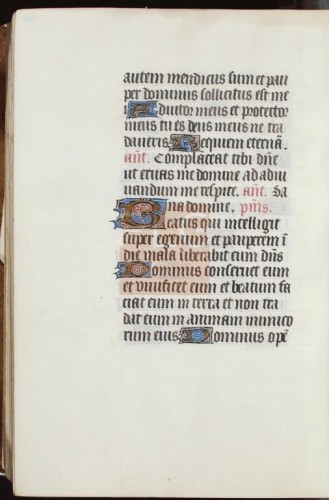 autem mendicus sum et pau
per dominus sollicitus est mei
Adiutor meus et protector
meus tu es deus meus ne tar
daveris Requiem eternā.
añt. Complaceat tibi dñe
ut eruas me domine ad adiu
uandum me respice. añt. Sa
na domine. p̄ūs.
Beatus qui intelligit
super egenum et pauperem ī
die mala liberabit eum dñs
Dominus conseruet eum
et uiuificet eum et beatum fa
ciat eum in terra et non tra
dat eum in animam inimico
rum eius Dominus opē